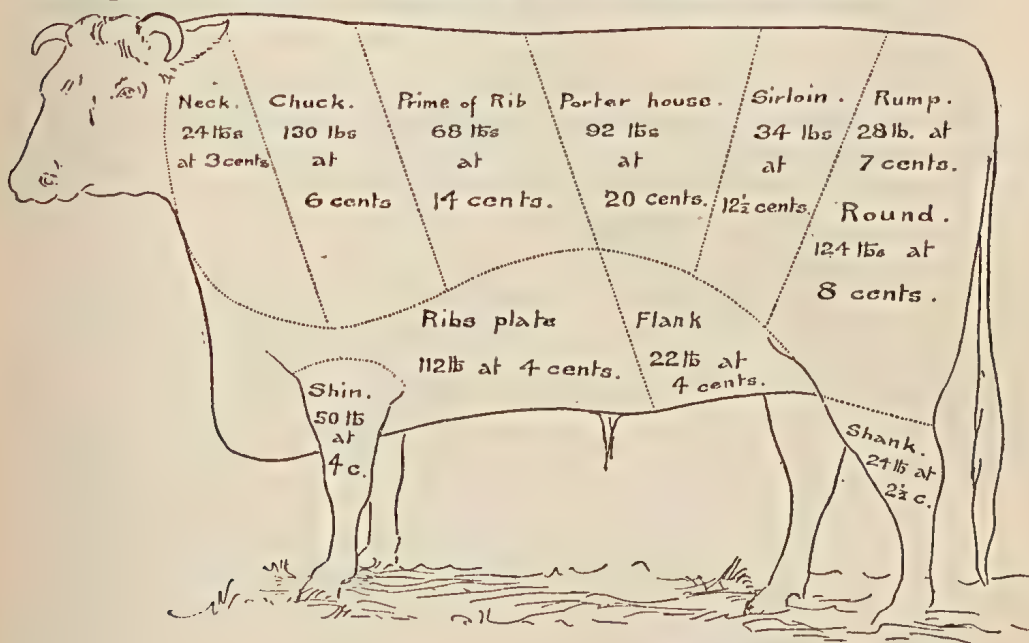 Neck.
24 lbs
at 3 cents
Chuck.
130 lbs
at
6 cents
Prime of Rib
68 lbs
at
14 cents.
Porter house.
92 lbs
at
20 cents.
Sirloin.
34 lbs
at
12½ cents.
Rump.
28 lb. at
7 cents.
Round.
124 lbs at
8 cents.
Ribs plate
112 lb at 4 cents.
Flank
22 lb at
4 cents.
Shin.
50 lb
at
4 c.
Shank.
24 lb at
2½ c.